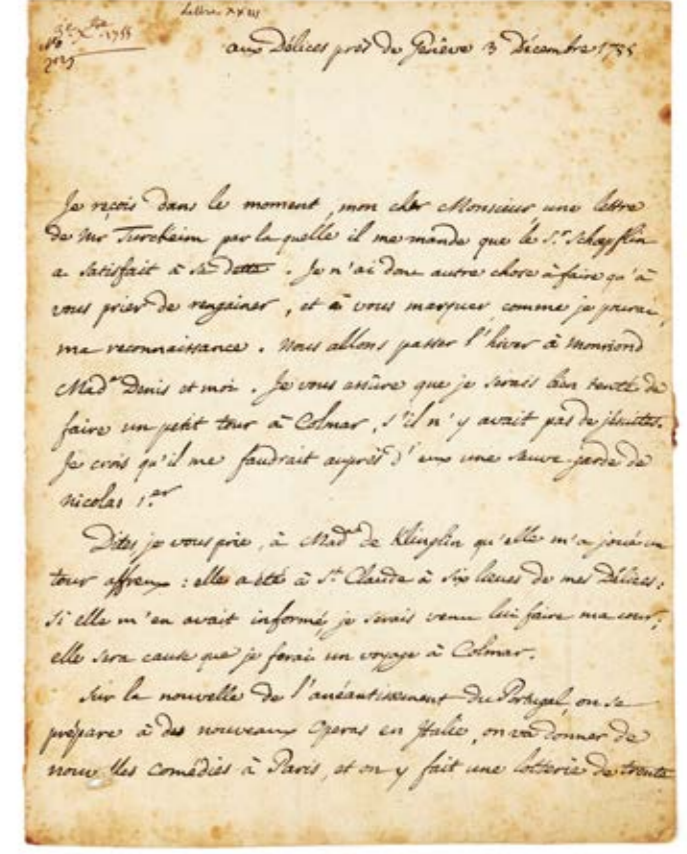 Lettre XXIII
1755
aux Délices près de Genève 3 Décembre 1755
Je reçois dans le moment, mon cher Monsieur une lettre
de Mr Turckeim par laquelle il me mande que le S.r Schœpflin
a satisfait à sa dette. Je n'ai donc autre chose à faire qu'à
vous prier de rengainer, et à vous marquer comme je pourai,
ma reconnaissance. Nous allons passer l'hiver à monriond
Made Denis et moi. Je vous assûre que je serais bien tenté de
faire un petit tour à Colmar, s'il n'y avait pas de jésuites.
Je crois qu'il me faudrait auprès d'eux une sauve-garde de
nicolas 1.er
Dites je vous prie, à Made de Klinglin qu'elle m'a joué un
tour affreux : elle a été à St Claude à six lieues de mes Délices;
si elle m'en avait informé, je serais venu lui faire ma cour;
elle sera cause que je ferai un voyage à Colmar.
Sur la nouvelle de l'anéantissement du Portugal, on se
prépare à des nouveaux Operas en Italie, on va donner de
nouvelles comédies à Paris, et on y fait une lotterie de trente